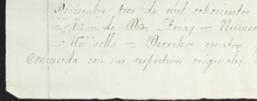 Diciembre tres de mil ochocientos
= Juan de Dios Arias = Número
= Un sello = Derecho cuatro
Concuerda con sus respectivos originales,